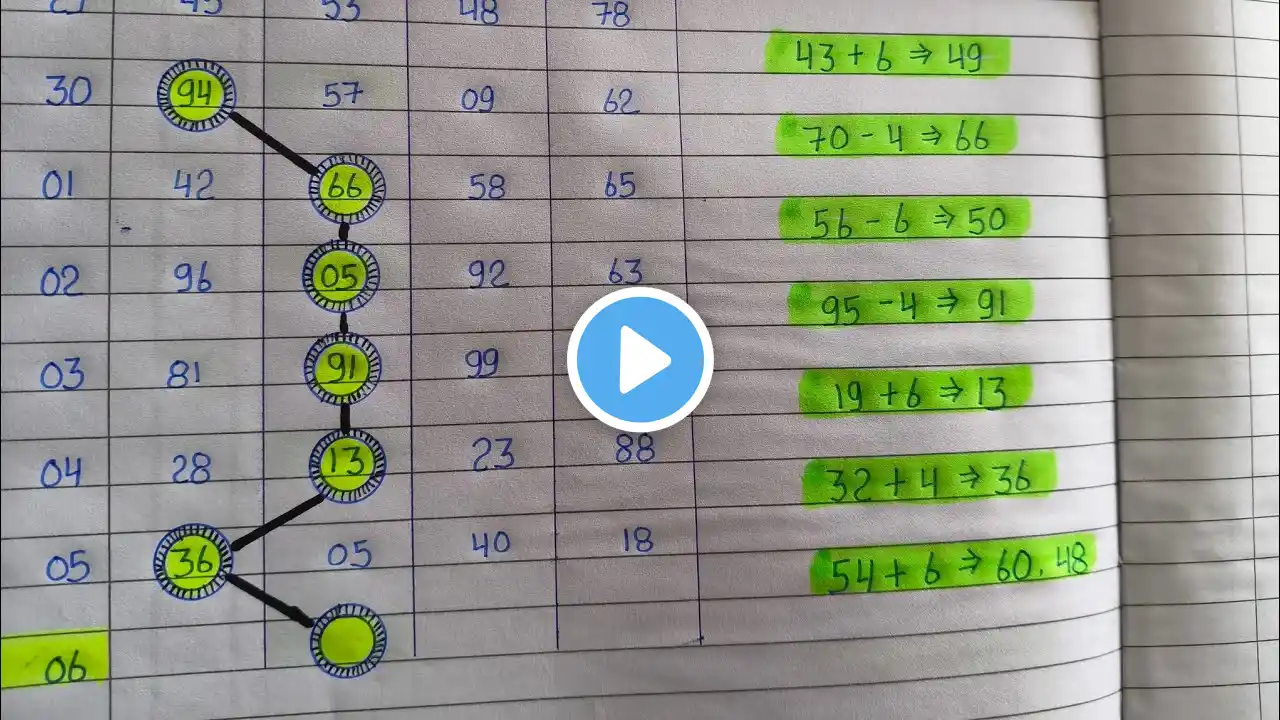 53 48 78
30 94 57 09 62
43 + 6 ⇒ 49
01 42 66 58 65
70 - 4 ⇒ 66
02 96 05 92 63
56 - 6 ⇒ 50
03 81 91 99
95 - 4 ⇒ 91
04 28 13 23 88
19 + 6 ⇒ 13
05 36 05 40 18
32 + 4 ⇒ 36
06
54 + 6 ⇒ 60.48